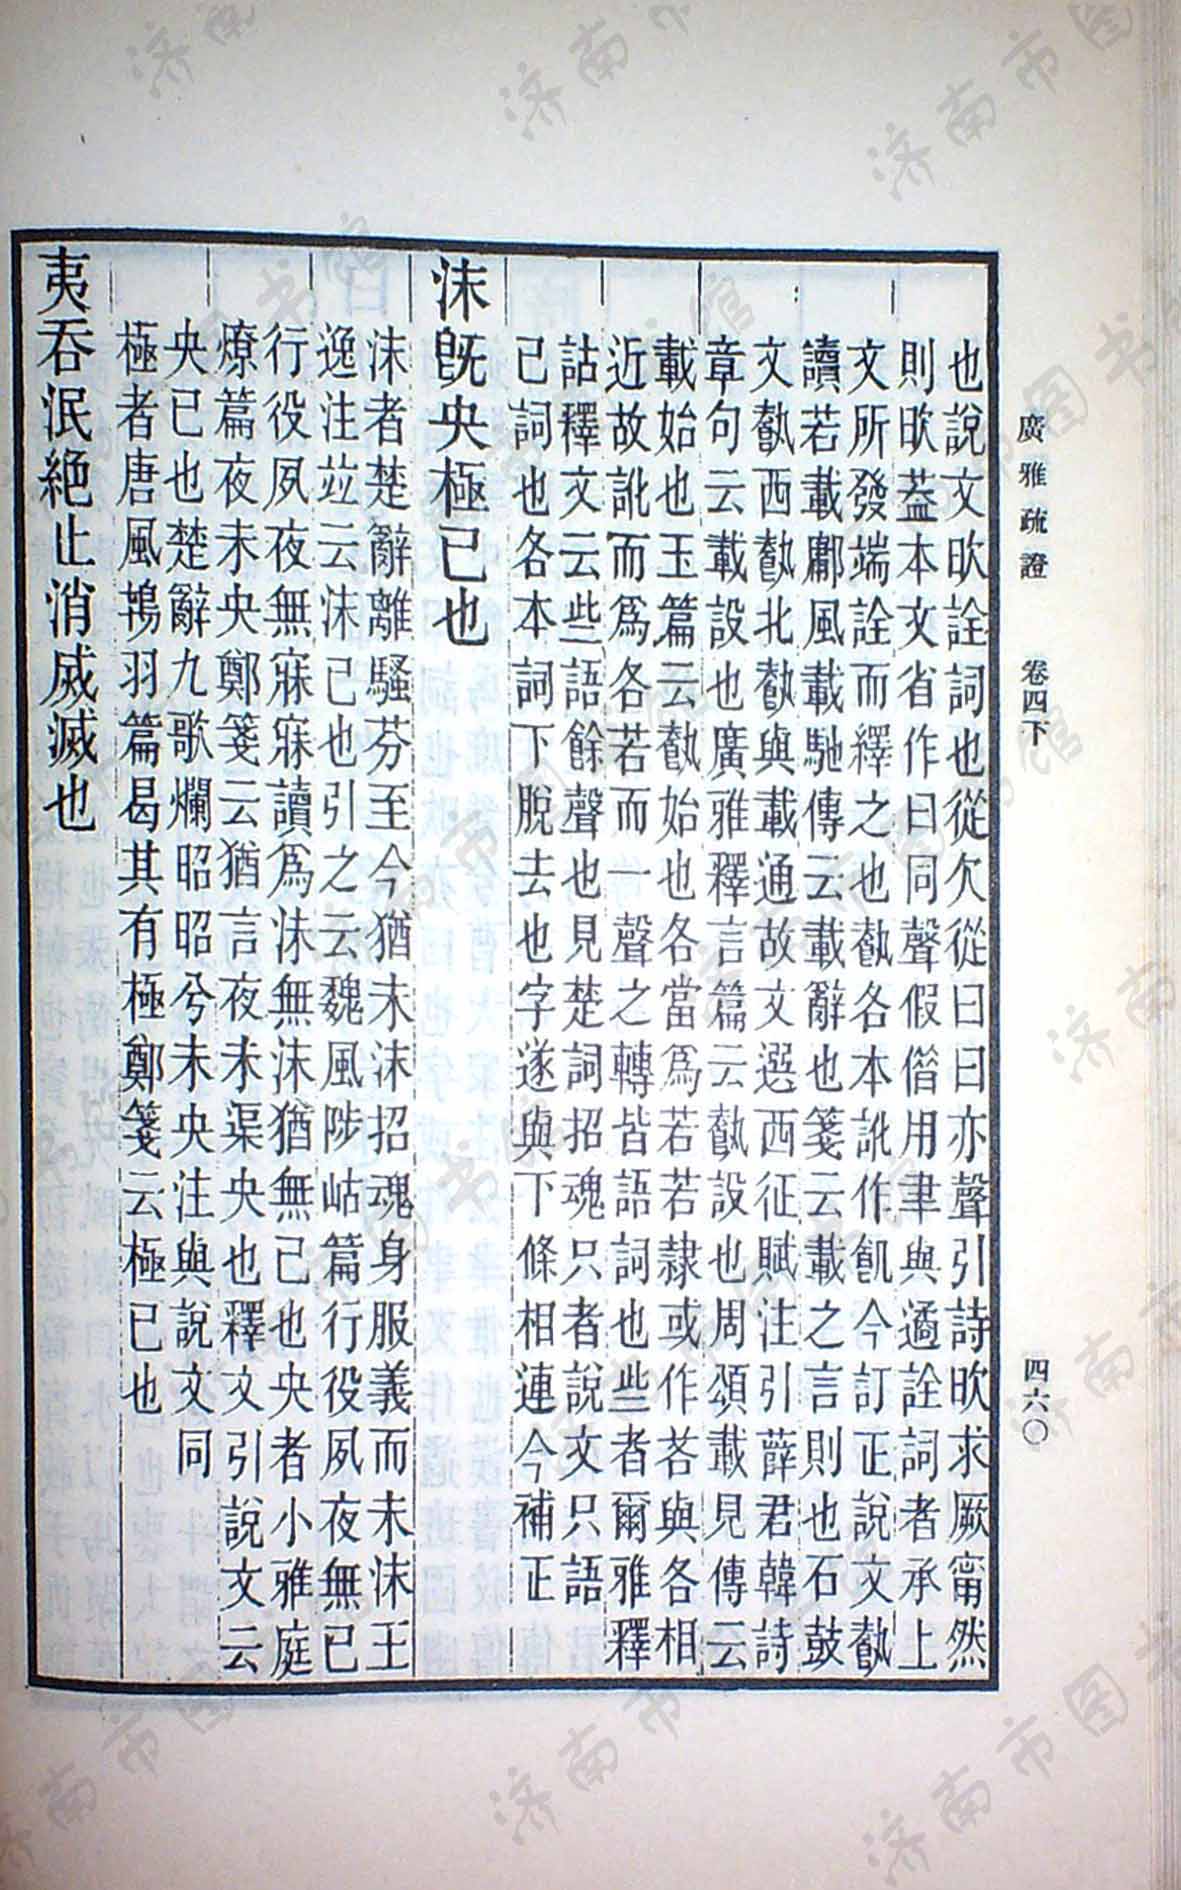 廣雅疏證 卷四下 四六〇
也說文欥詮詞也從欠從曰曰亦聲引詩欥求厥甯然
則欥葢本文省作曰同聲假借用聿與遹詮詞者承上
文所發端詮而繹之也 各本訛作 今訂正說文
讀若載鄘風載馳傳云載辭也箋云載之言則也石鼓
文 西 北 與載通故文選西征賦注引薛君韓詩
章句云載設也廣雅釋言篇云 設也周頌載見傳云
載始也玉篇云 始也各當爲若若隸或作若與各相
近故訛而爲各若而一聲之轉皆語詞也些者爾雅釋
詁釋文云些語餘聲也見楚詞招魂只者說文只語
已詞也各本詞下脫去也字遂與下條相連今補正
沬旣央極已也
沬者楚辭離騷芬至今猶未沬招魂身服義而未沬王
逸注竝云沬已也引之云魏風陟岵篇行役夙夜無已
行役夙夜無寐寐讀爲沬無沬猶無已也央者小雅庭
燎篇夜未央鄭箋云猶言夜未渠央也釋文引說文云
央已也楚辭九歌爛昭昭兮未央注與說文同
極者唐風鴇羽篇曷其有極鄭箋云極已也
夷吞泯絶止消烕滅也
濟南市图书馆